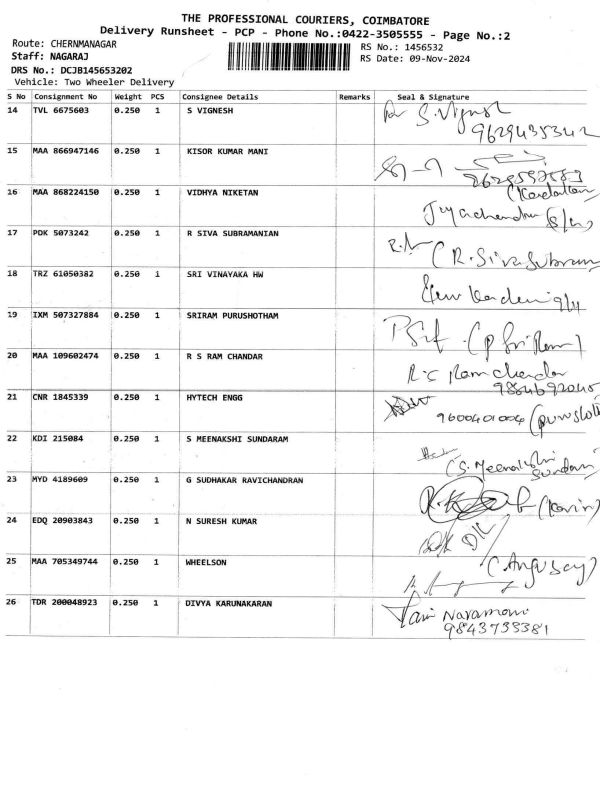 THE PROFESSIONAL COURIERS, COIMBATORE
Delivery Runsheet - PCP - Phone No.:0422-3505555 - Page No.:2
Route: CHERNMANAGAR
RS No.: 1456532
Staff: NAGARAJ
RS Date: 09-Nov-2024
DRS No.: DCJB145653202
Vehicle: Two Wheeler Delivery
S No Consignment No Weight PCS Consignee Details Remarks Seal & Signature
14 TVL 6675603 0.250 1 S VIGNESH S. Vignesh
9629435342
15 MAA 866947146 0.250 1 KISOR KUMAR MANI
16 MAA 868224150 0.250 1 VIDHYA NIKETAN
17 PDK 5073242 0.250 1 R SIVA SUBRAMANIAN
(R. Siva Subram
18 TRZ 61050382 0.250 1 SRI VINAYAKA HW
9/11
19 IXM 507327884 0.250 1 SRIRAM PURUSHOTHAM
20 MAA 109602474 0.250 1 R S RAM CHANDAR R.S Ram chandar
9884692045
21 CNR 1845339 0.250 1 HYTECH ENGG
9600401004
22 KDI 215084 0.250 1 S MEENAKSHI SUNDARAM
(S. Meenakshi
Sundaram)
23 MYD 4189609 0.250 1 G SUDHAKAR RAVICHANDRAN
(Kavin)
24 EDQ 20903843 0.250 1 N SURESH KUMAR
25 MAA 705349744 0.250 1 WHEELSON
26 TDR 200048923 0.250 1 DIVYA KARUNAKARAN
9843733381